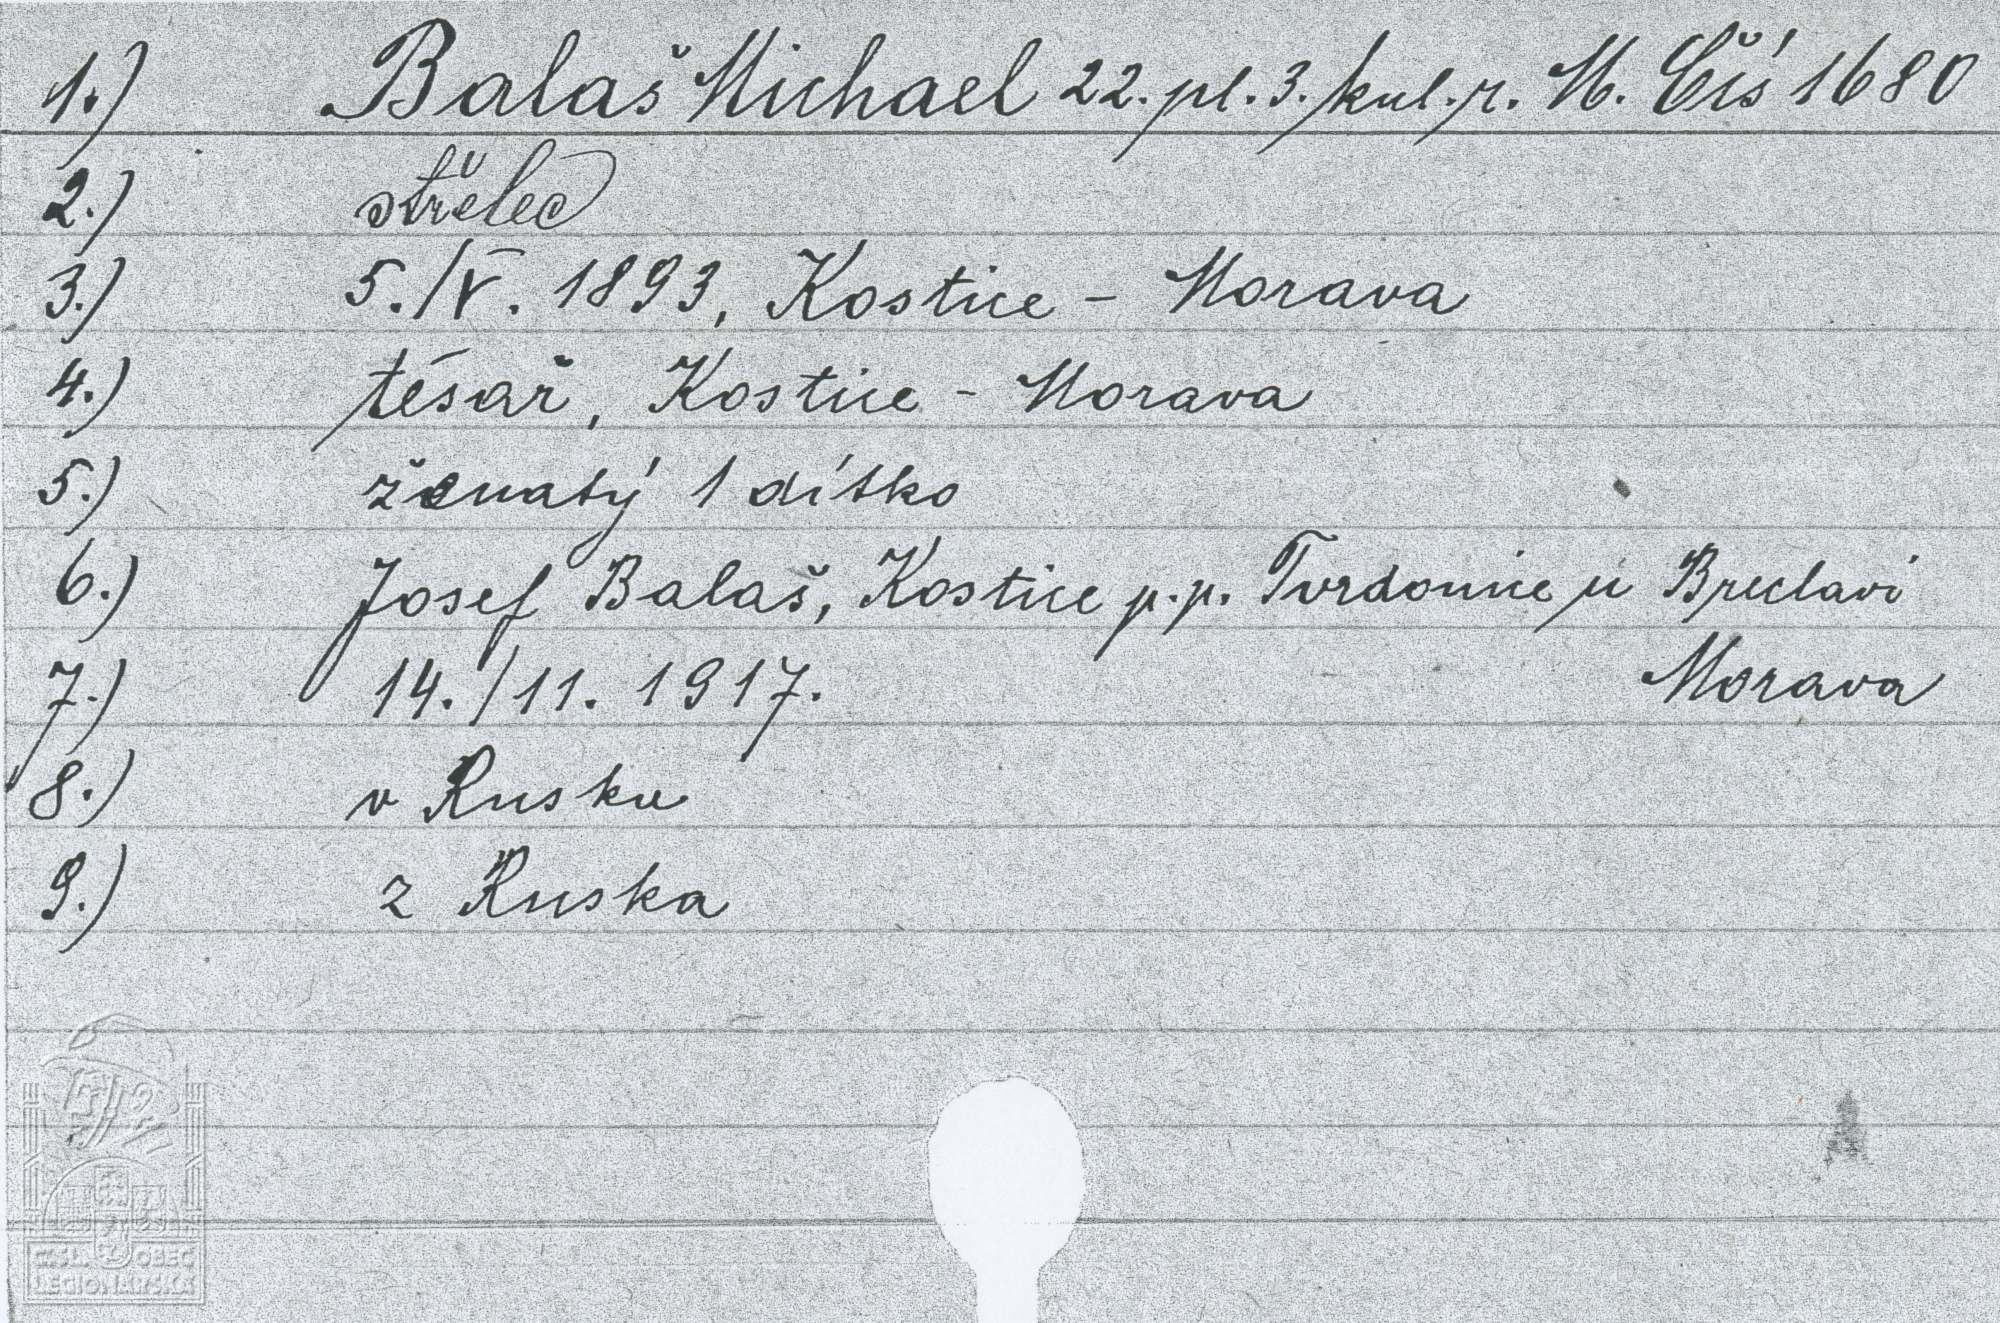 1.) Balaš Michael 22. pl. 3. kul. r. M. Čís 1680
2.) střelec
3.) 5./V. 1893, Kostice - Morava
4.) tésař, Kostice - Morava
5.) ženatý 1 dítko
6.) Josef Balaš, Kostice p.p. Tvrdonice u Breclavi
7.) 14./11. 1917. Morava
8.) v Rusku
9.) z Ruska
ČSL. OBEC
LEGIONÁŘSKÁ